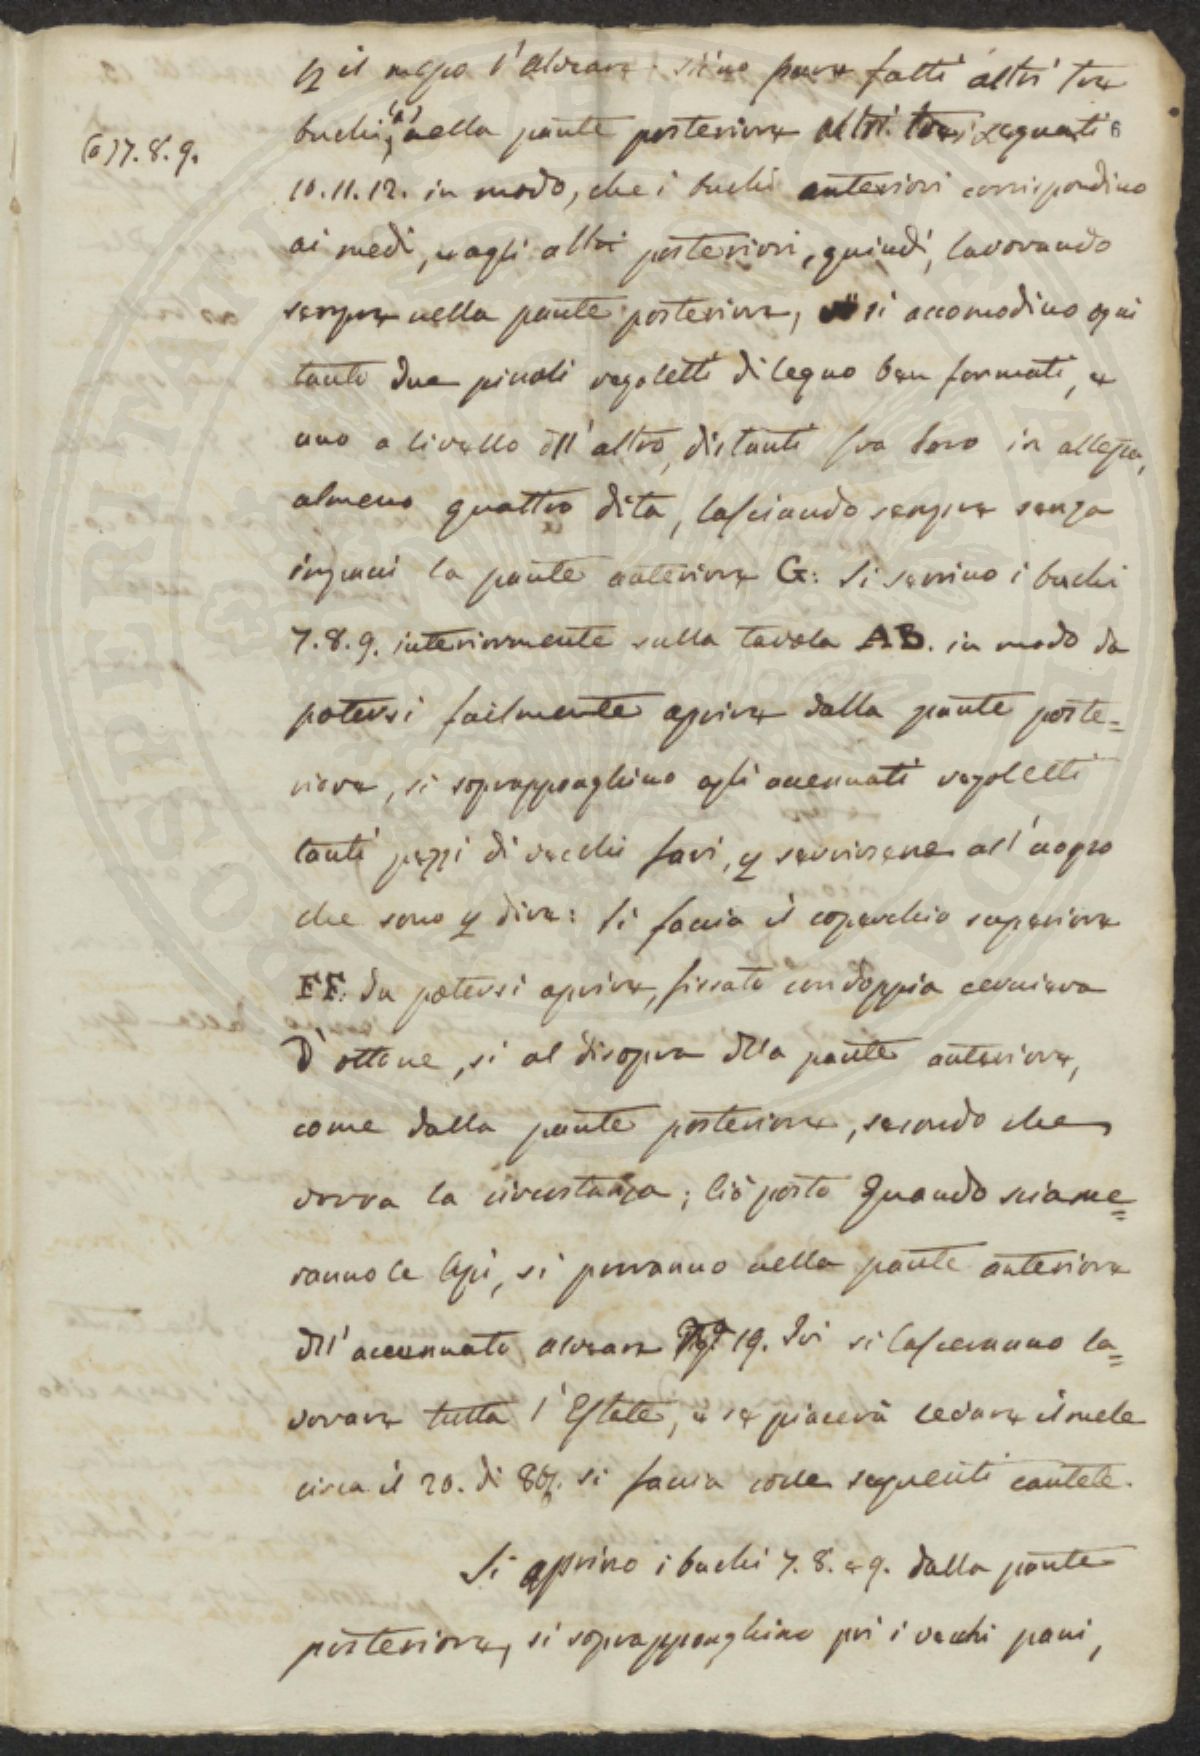 p il mezzo l'alveare: siino pure fatti altri tre
buchi,(a) nella parte posteriore altri tre segnati
(a) 7. 8. 9.
10. 11. 12. in modo, che i buchi anteriori corrispondino
ai medi, e agli altri posteriori, quindi, lavorando
sempre nella parte posteriore, si accomodino ogni
tanto due piccoli regoletti di legno ben formati, e
uno a livello dll' altro, distanti fra loro in altezza,
almeno quattro dita, lasciando sempre senza
impacci la parte anteriore G: Si serrino i buchi
7. 8. 9. interiormente sulla tavola AB. in modo da
potersi facilmente aprire dalla parte poste=
riore, si soprapponghino agli accennati regoletti
tanti pezzi di vecchi favi, p servirsene all' uopo
che sono p dire: Si faccia il coperchio superiore
FF. da potersi aprire, fissato con doppia cerniera
d' ottone, si al disopra dlla parte anteriore,
come dalla parte posteriore, secondo che
vorrà la circostanza; Ciò posto Quando sciame=
ranno le Api, si porranno nella parte anteriore
dll' accennato alveare 19. Ivi si lasceranno la=
vorare tutta l' Estate, e se piacerà levare il mele
circa il 20. di 8bre. si faccia colle seguenti cautele.
Si aprino i buchi 7. 8. e 9. dalla parte
posteriore, si soprapponghino poi i vecchi pani,